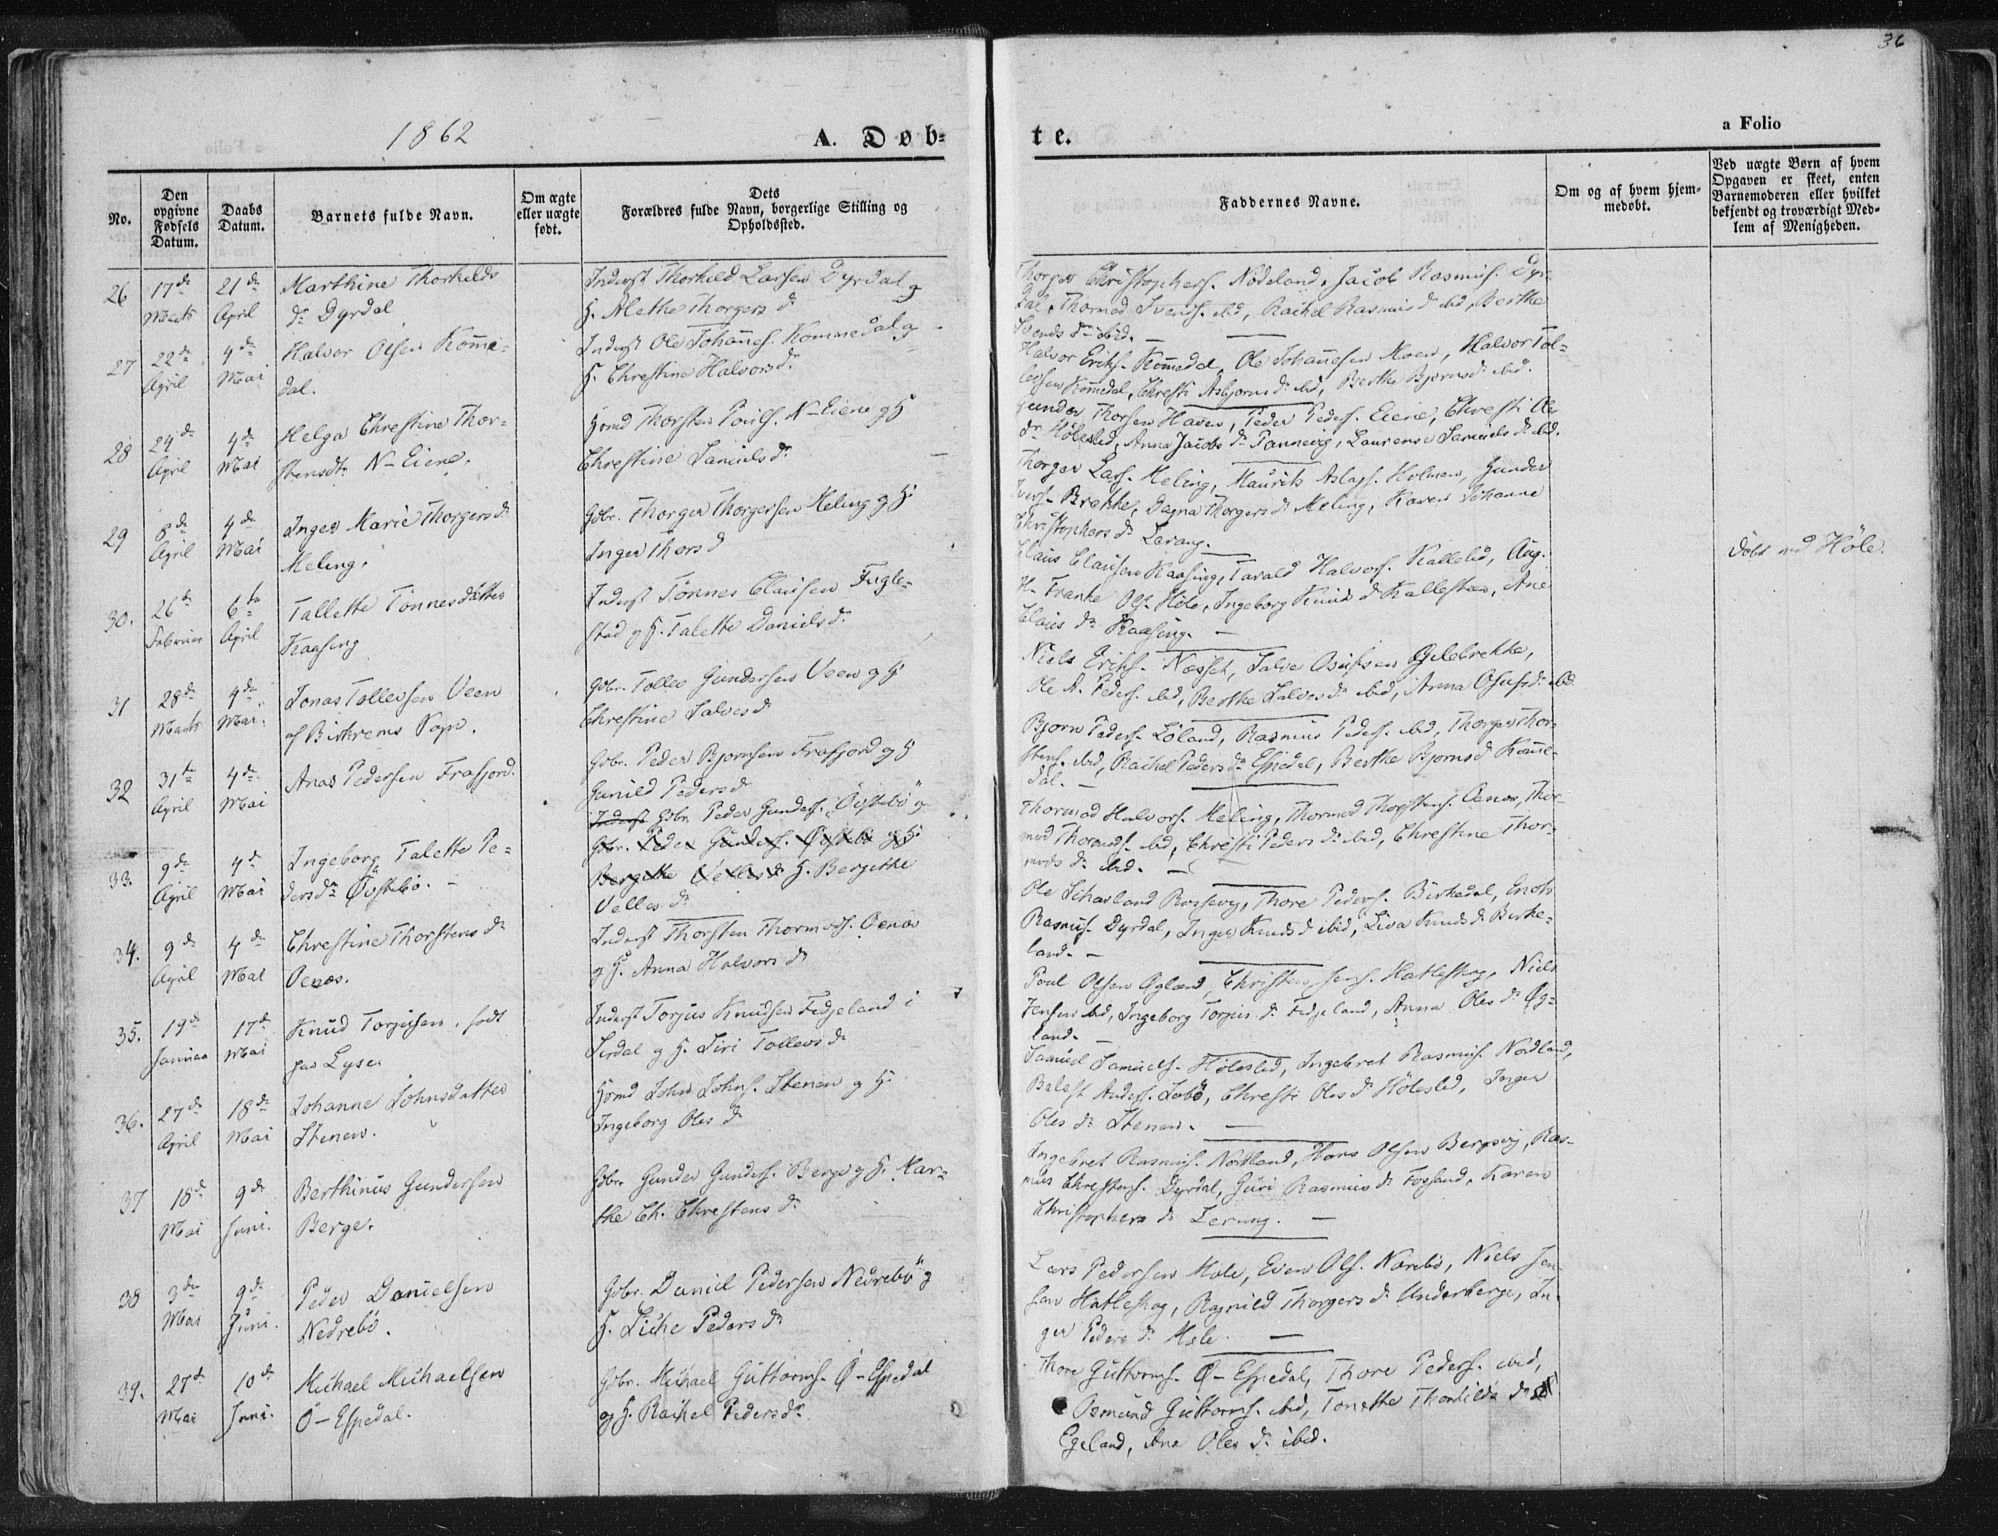 36
1862
A. Døb-
te.
a Folio
No.
Den opgivne Fødsels Datum.
Daabs Datum.
Barnets fulde Navn.
Om ægte eller uægte født.
Dets Forældres fulde Navn, borgerlige Stilling og Opholdssted.
Faddernes Navne.
Om og af hvem hjemmedøbt.
Ved uægte Børn af hvem Opgaven er skeet, enten Barnemoderen eller hvilket bekjendt og troværdigt Medlem af Menigheden.
26 17de Marts 21de April
Marthine Thorkilds
dr Dyrdal
Inderst Thorkild Larsen Dyrdal og
H. Methe Thorgersdr
Thorger Christophers. Nodeland, Jacob Rasmus. Dyr-
dal, Thormod Svends. ibid, Rachel Rasmusdr ibid, Berthe
Svendsdr ibid.
27 22de April 4de Mai
Halvor Olsen Komme-
dal.
Inderst Ole Johannes. Kommedal og
H. Christine Halvorsdr
Halvor Eriks. Komedal, Ole Johannesen Moen, Halvor Tol-
lefsen Komedal, Christi Asbjornsdr ibid, Berthe Bjornsdr ibid.
28 24de April 4de Mai
Helga Christine Thor-
stensdtr N-Eiene.
Hmd Thorsten Pouls. N-Eiene og H
Christine Samuelsdr
Gunder Thorsen Haven, Peder Peders. Eiene, Christi Ols
dr Hölesled, Anna Jacobsdr Tannevig, Laurense Samuelsdr ibid.
29 8de April 4de Mai
Inger Marie Thorgersdr
Meling.
Gbr. Thorger Thorgersen Meling og H.
Inger Thorsd
Thorger Lars. Meling, Maurits Aslags. Holmen, Gunder
Ivers. Brekke, Dagna Thorgersdr Meling, Karen Johanne
Christophersdr Levang.
30. 26de Februar 6te April
Tallette Tönnesdatter
Kaasing
Inderst Tönnes Clausen Fugle-
stad og H. Talette Danielsdr
Claus Clausen Kaasing, Tarald Halvors. Kallelid, Aug.
H. Franke Ols. Höle, Ingeborg Knudsdr Kallestein, Ane
Clausdr Kaasing.
Döbt ved Höle.
31 28de Marts 4de Mai.
Jonas Tollevsen Veen
af Birkrems Sogn.
Gbr. Tollev Gundersen Veen og H
Christine Salvesdr
Niels Eriks. Næsset, Salve Osufsen Gilebrekke,
Ole A. Peders. ibid, Berthe Salvesdr ibid, Anna Osufsdr ibid.
32 31te April 4de Mai
Anas Pedersen Frafjord.
Gbr. Peder Bjornsen Frafjord og H
Gunild Pedersd
Bjorn Peders. Löland, Rasmus Peders. ibid, Thorger Thor-
stens. ibid, Rachel Pedersdr Espedal, Berthe Bjornsd Komme-
dal.
33. 9de April 4de Mai
Ingeborg Talette Pe-
dersdr Övstebö.
Inderst Gbr. Peder Gunders. Övstebö og
Gbr. Peder Gunders. Övstebö og H.
Bergithe Vellesd H. Bergithe
Vellesdr
Thormod Halvors. Meling, Thormod Thorstens. Oenos, Thor-
mod Thormods. ibid, Christi Pedersdr ibid, Christine Thor-
modsdr ibid.
34. 9de April 4de Mai
Christine Thorstensdr
Oenos.
Inderst Thorsten Thormods. Oenos
og H. Anna Halvorsdr
Ole Scharland Rossevig, Thore Peders. Birkedal, Enok
Rasmus. Dyrdal, Inger Knudsd ibid, Liva Knudsdr Birke-
land.
35. 19de Januar 17de Mai
Knud Torjusen, födt
paa Lyse.
Inderst Torjus Knudsen Fedjeland i
Sirdal og H. Siri Tollevsdr
Poul Olsen Ogland, Christen Jens. Hatleskog, Niels
Jensen ibid, Ingeborg Torjusdr Fedjeland, Anna Olesdr Øg-
land.
36. 27de April 18de Mai
Johanne Johnsdatter
Stenen.
Hmd John Johns. Stenen og H.
Ingeborg Olesdr
Samuel Samuels. Hölesled, Ingebret Rasmus. Nordland,
Belest Anders. Lebö, Christi Olesdr Hölesled, Inger
Olesdr Stenen.
37 18de Mai 9de Juni.
Berthinus Gundersen
Berge.
Gbr. Gunder Gunders. Berge og H. Mar-
the Ch. Christensdr
Ingebret Rasmus. Nordland, Hans Olsen Bergsvig, Ras-
mus Christens. Dyrdal, Guri Rasmusdr Fossand, Karen
Christophersdr Lerang.
38 3de Mai 9de Juni.
Peder Danielsen
Nedrebö.
Gbr. Daniel Pedersen Nedrebö og
H. Siche Pedersdr
Lars Pedersen Mele, Even Ols. Norebö, Niels Jen-
sen Hatleskog, Ragnild Thorgersdr Underberge, In-
ger Pedersdr Mele.
39. 27d Mai 10de Juni.
Michael Michaelsen
Ö-Espedal.
Gbr. Michael Guttorms. Ö-Espedal
og H. Rachel Pedersdr
Thore Guttorms. Ö-Espedal, Thore Peders. ibid,
Osmund Guttorms. ibid, Tonette Thorkildsdr
Egeland, Ane Olesdr ibid.